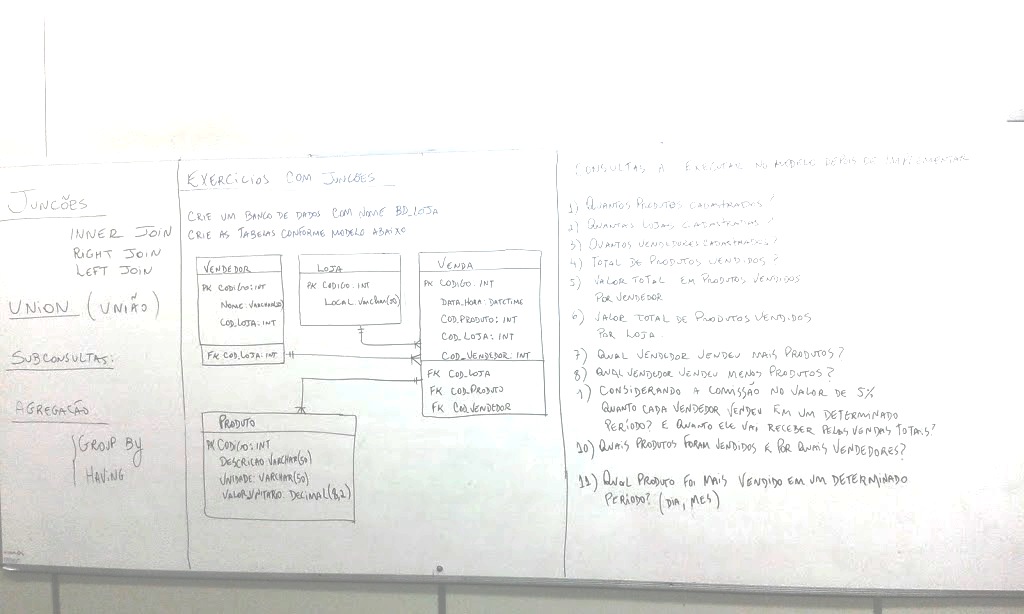 JUNCÕES
INNER JOIN
RIGHT JOIN
LEFT JOIN
UNION (UNIÃO)
SUBCONSULTAS:
AGREGAÇÃO
GROUP BY
HAVING
EXERCICIOS COM JUNCOES
CRIE UM BANCO DE DADOS COM NOME BD_LOJA
CRIE AS TABELAS CONFORME MODELO ABAIXO
VENDEDOR
PK CODIGO: INT
NOME: VARCHAR(50)
COD_LOJA: INT
FK COD_LOJA: INT
LOJA
PK CODIGO: INT
LOCAL VARCHAR(50)
VENDA
PK CODIGO: INT
DATA_HORA: DATETIME
COD_PRODUTO: INT
COD_LOJA: INT
COD_VENDEDOR: INT
FK COD_LOJA
FK COD_PRODUTO
FK COD_VENDEDOR
PRODUTO
PK CODIGO: INT
DESCRICAO VARCHAR(50)
UNIDADE: VARCHAR(50)
VALOR_UNITARIO: DECIMAL(8,2)
CONSULTAS A EXECUTAR NO MODELO DEPOIS DE IMPLEMENTAR
1) QUANTOS PRODUTOS CADASTRADOS?
2) QUANTAS LOJAS CADASTRADAS?
3) QUANTOS VENDEDORES CADASTRADOS?
4) TOTAL DE PRODUTOS VENDIDOS?
5) VALOR TOTAL EM PRODUTOS VENDIDOS
POR VENDEDOR
6) VALOR TOTAL DE PRODUTOS VENDIDOS
POR LOJA
7) QUAL VENDEDOR VENDEU MAIS PRODUTOS?
8) QUAL VENDEDOR VENDEU MENOS PRODUTOS?
9) CONSIDERANDO A COMISSÃO NO VALOR DE 5%
QUANTO CADA VENDEDOR VENDEU EM UM DETERMINADO
PERÍODO? E QUANTO ELE VAI RECEBER PELAS VENDAS TOTAIS?
10) QUAIS PRODUTOS FORAM VENDIDOS E POR QUAIS VENDEDORES?
11) QUAL PRODUTO FOI MAIS VENDIDO EM UM DETERMINADO
PERÍODO? (DIA, MES)